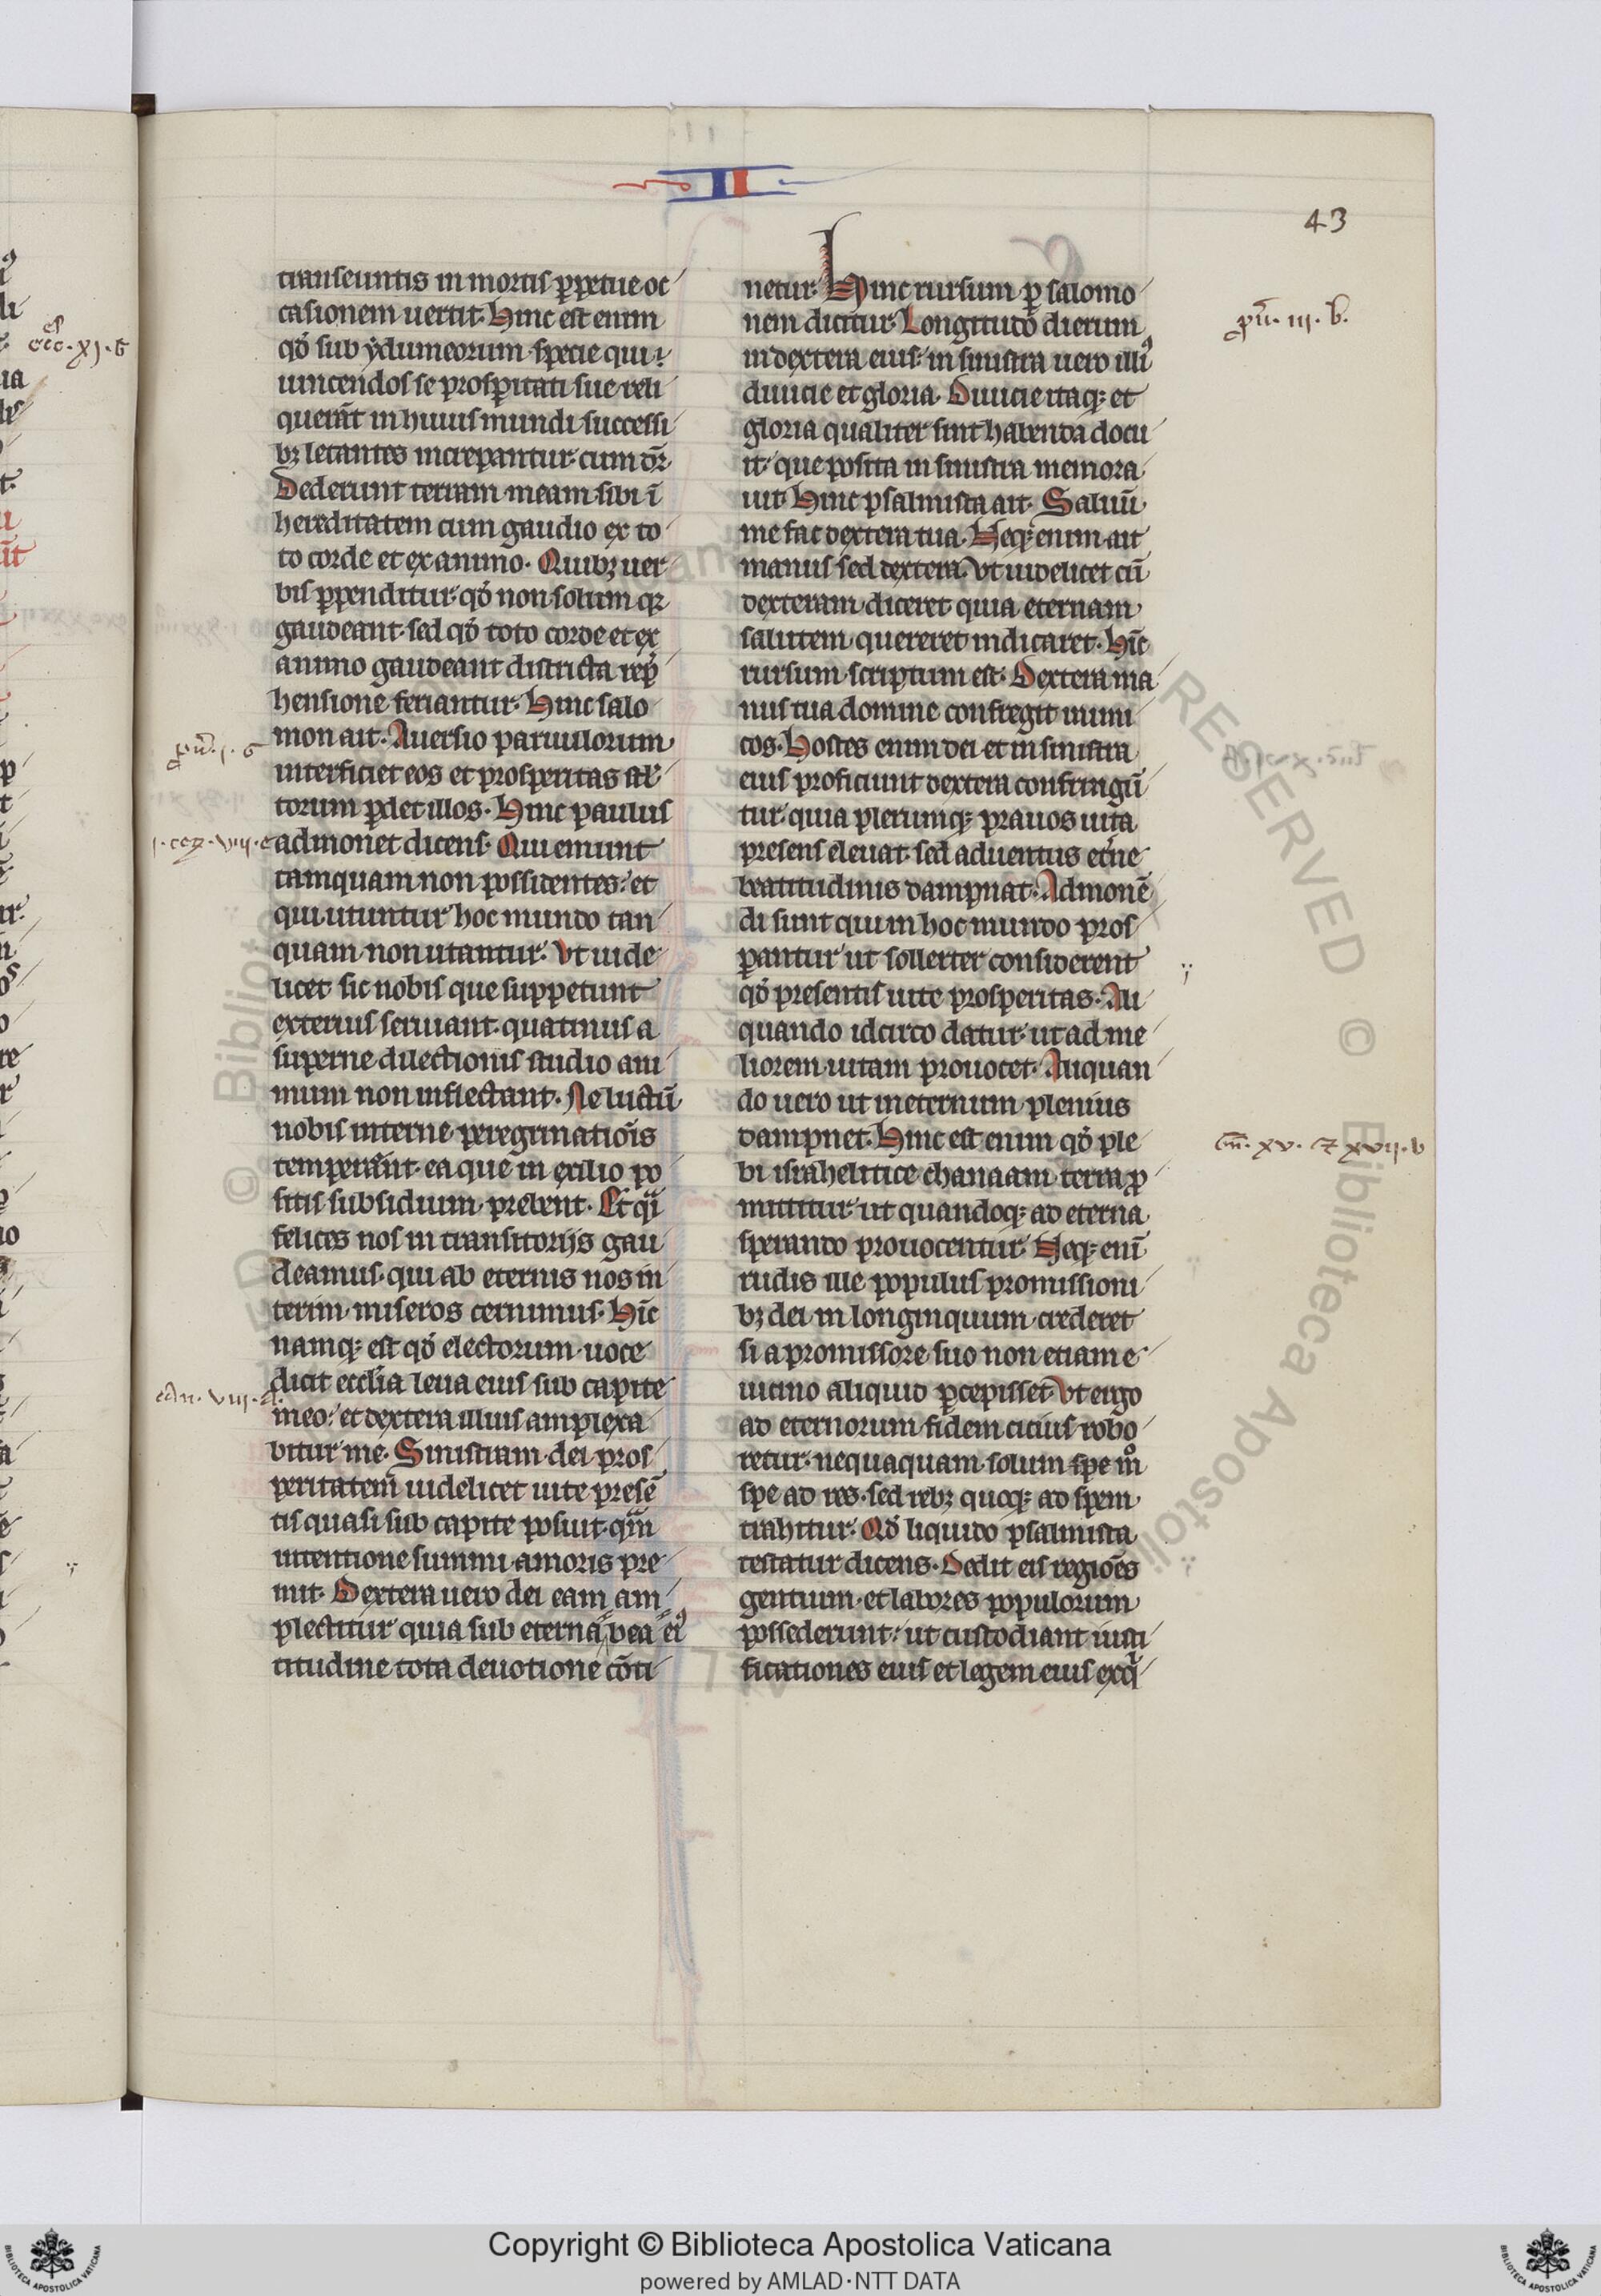 II
43
transeuntis in mortis ꝑpetue oc
casionem uertit. Hinc est enim
qď sub ydumeorum specie qui
uincendos se prosꝑitati sue reli
querūt in huius mundi successi
bꝫ letantes increpantur. cum dr̄.
Dederunt terram meam sibi ī
hereditatem cum gaudio ex to
to corde et ex animo. Quibꝫ uer
bis ꝑpenditur qď non solum qꝛ
gaudeant. sed qď toto corde et ex
animo gaudeant districta rep̄
hensione feriantur. Hinc salo
mon ait. Auersio paruulorum
interficiet eos et prosperitas stl̓
torum ꝑdet illos. Hinc paulus
admonet dicens. Qui emunt
tamquam non possidentes. et
qui utuntur hoc mundo tan
quam non utantur. Vt uide
licet sic nobis que suppetunt
exterius seruiant. quatinus a
superne dilectionis studio ani
mum non inflectant. Ne luctū
nobis interne peregrinatiōis
temperānt. ea que in exilio po
sitis subsidium prebent. Et qͣi
felices nos in transitorijs gau
deamus. qui ab eternis nos in
terim miseros cernimus. Hīc
namqꝫ est qď electorum uoce
dicit eccl̓ia leua eius sub capite
meo. et dextera illius amplexa
bitur me. Sinistram dei pros
peritatem uidelicet uite presē
tis quasi sub capite posuit. qͣm
intentione summi amoris pre
mit. Dextera uero dei eam am
plectitur quia sub eterna bea eiꝰ
titudine tota deuotione cōti
netur. Hinc rursum ꝑ salomo
nem dicitur. Longitudo dierum
in dextera eius. in sinistra uero illiꝰ
diuicie et gloria. Diuicie itaqꝫ et
gloria qualiter sint habenda docu
it. que posita in sinistra memora
uit. Hinc psalmista ait. Saluū
me fac dextera tua. Neqꝫ enim ait
manus sed dextera. Vt uidelicet cū
dexteram diceret quia eternam
salutem quereret indicaret. Hīc
rursum scriptum est. Dextera ma
nus tua domine confregit inimi
cos. Hostes enim dei et in sinistra
eius proficiunt dextera confringū
tur. quia plerumqꝫ prauos uita
presens eleuat. sed aduentus et̓ne
beatitudinis dampnat. Admonē
di sunt qui in hoc mundo pros
ꝑantur ut sollerter considerent
qď presentis uite prosperitas. Ali
quando idcirco datur. ut ad me
liorem uitam prouocet. Aliquan
do uero ut in eternum plenius
dampnet. Hinc est enim qď ple
bi israhelitice chanaam terra ꝓ
mittitur. ut quandoqꝫ ad eterna
speranda prouocentur. Neqꝫ enī
rudis ille populus promissioni
bꝫ dei in longinquum crederet
si a promissore suo non etiam e
uicino aliquid ꝑcepisset. Vt ergo
ad eternorum fidem citius robo
retur. nequaquam solum spe m̊
spe ad res. sed rebꝫ quoqꝫ ad spem
trahitur. Qď liquido psalmista
testatur dicens. Dedit eis regiōes
gentium. et labores populorum
possederunt. ut custodiant iusti
ficationes eius et legem eius exqͥ
ꝓū. iii. b.
ꝓū. i. g
i. coꝝ. vii. e
can. viii. a.
Gn̄. xv. ⁊ xvii. b
Copyright © Biblioteca Apostolica Vaticana
powered by AMLAD·NTT DATA